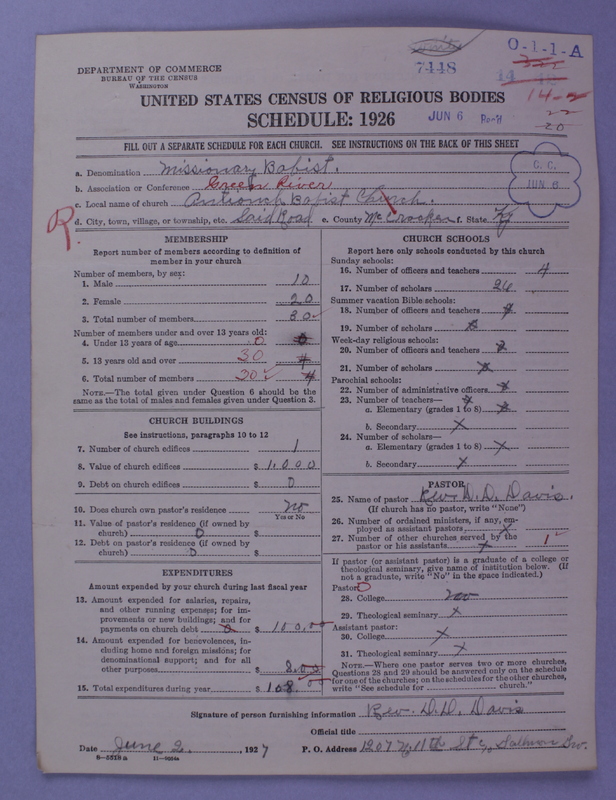 O-1-1-A
7448
DEPARTMENT OF COMMERCE
BUREAU OF THE CENSUS
WASHINGTON
14-
22
20
UNITED STATES CENSUS OF RELIGIOUS BODIES
SCHEDULE: 1926
JUN 6
FILL OUT A SEPARATE SCHEDULE FOR EACH CHURCH. SEE INSTRUCTIONS ON THE BACK OF THIS SHEET
C. C.
JUN 6
a. Denomination Missionary Baptist.
b. Association or Conference Green River
c. Local name of church Antioch Baptist Church.
d. City, town, village, or township, etc. Road e. County McCracken f. State Ky
R
MEMBERSHIP
Report number of members according to definition of member in your church
Number of members, by sex:
1. Male 10
2. Female 20
3. Total number of members 30
Number of members under and over 13 years old:
4. Under 13 years of age 0
5. 13 years old and over 30
6. Total number of members 30
NOTE.—The total given under Question 6 should be the same as the total of males and females given under Question 3.
CHURCH BUILDINGS
See instructions, paragraphs 10 to 12
7. Number of church edifices 1
8. Value of church edifices $ 1,000
9. Debt on church edifices $ 0
10. Does church own pastor's residence no
Yes or No
11. Value of pastor's residence (if owned by church) 0 $
12. Debt on pastor's residence (if owned by church) 0 $
EXPENDITURES
Amount expended by your church during last fiscal year
13. Amount expended for salaries, repairs, and other running expenses; for improvements or new buildings; and for payments on church debt $ 100.00
14. Amount expended for benevolences, including home and foreign missions; for denominational support; and for all other purposes $ 8.00
15. Total expenditures during year $ 108.00
CHURCH SCHOOLS
Report here only schools conducted by this church
Sunday schools:
16. Number of officers and teachers 4
17. Number of scholars 26
Summer vacation Bible schools:
18. Number of officers and teachers
19. Number of scholars
Week-day religious schools:
20. Number of officers and teachers
21. Number of scholars x
Parochial schools:
22. Number of administrative officers
23. Number of teachers—
a. Elementary (grades 1 to 8)
b. Secondary x
24. Number of scholars—
a. Elementary (grades 1 to 8) x
b. Secondary x
PASTOR
25. Name of pastor Rev. D. D. Davis.
(If church has no pastor, write "None")
26. Number of ordained ministers, if any, employed as assistant pastors x
27. Number of other churches served by the pastor or his assistants x 1
If pastor (or assistant pastor) is a graduate of a college or theological seminary, give name of institution below. (If not a graduate, write "No" in the space indicated.)
Pastor:
28. College no
29. Theological seminary x
Assistant pastor:
30. College x
31. Theological seminary x
NOTE.—Where one pastor serves two or more churches, Questions 28 and 29 should be answered only on the schedule for one of the churches; on the schedules for the other churches, write "See schedule for church."
Signature of person furnishing information Rev. D. D. Davis
Official title
Date June 2, 1927 P. O. Address 1207 N. 11th St
8—5518a 11—9034a